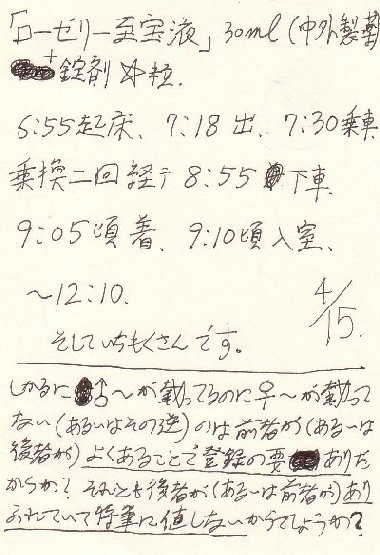 「ローゼリー至宝液」30ml(中外製薬
+錠剤 粒.
6:55起床、7:18出、7:30乗車
乗換二回経テ8:55下車.
9:05頃着、9:10頃入室.
~12:10.
4/15.
そしていちもくさんです。
しかるに♂~が載ってるのに♀~が載って
ない(あるいはその逆)のは前者が(あるいは
後者が)よくあることで登録の要ありた
からか? それとも後者が(あるいは前者が)あり
ふれていて特筆に値しないからでしょうか?